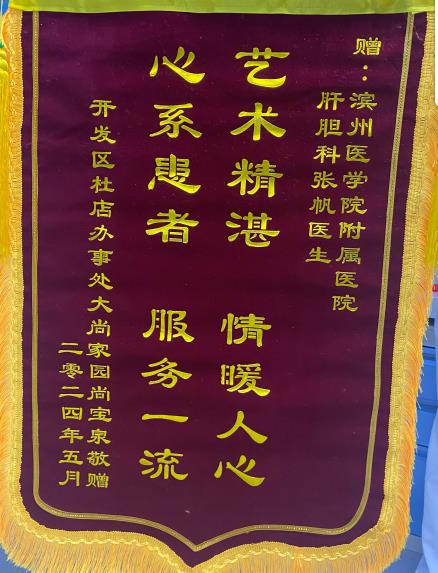 赠：滨州医学院附属医院
肝胆科张帆医生
艺术精湛 情暖人心
心系患者 服务一流
开发区杜店办事处大尚家园尚宝泉敬赠
二零二四年五月